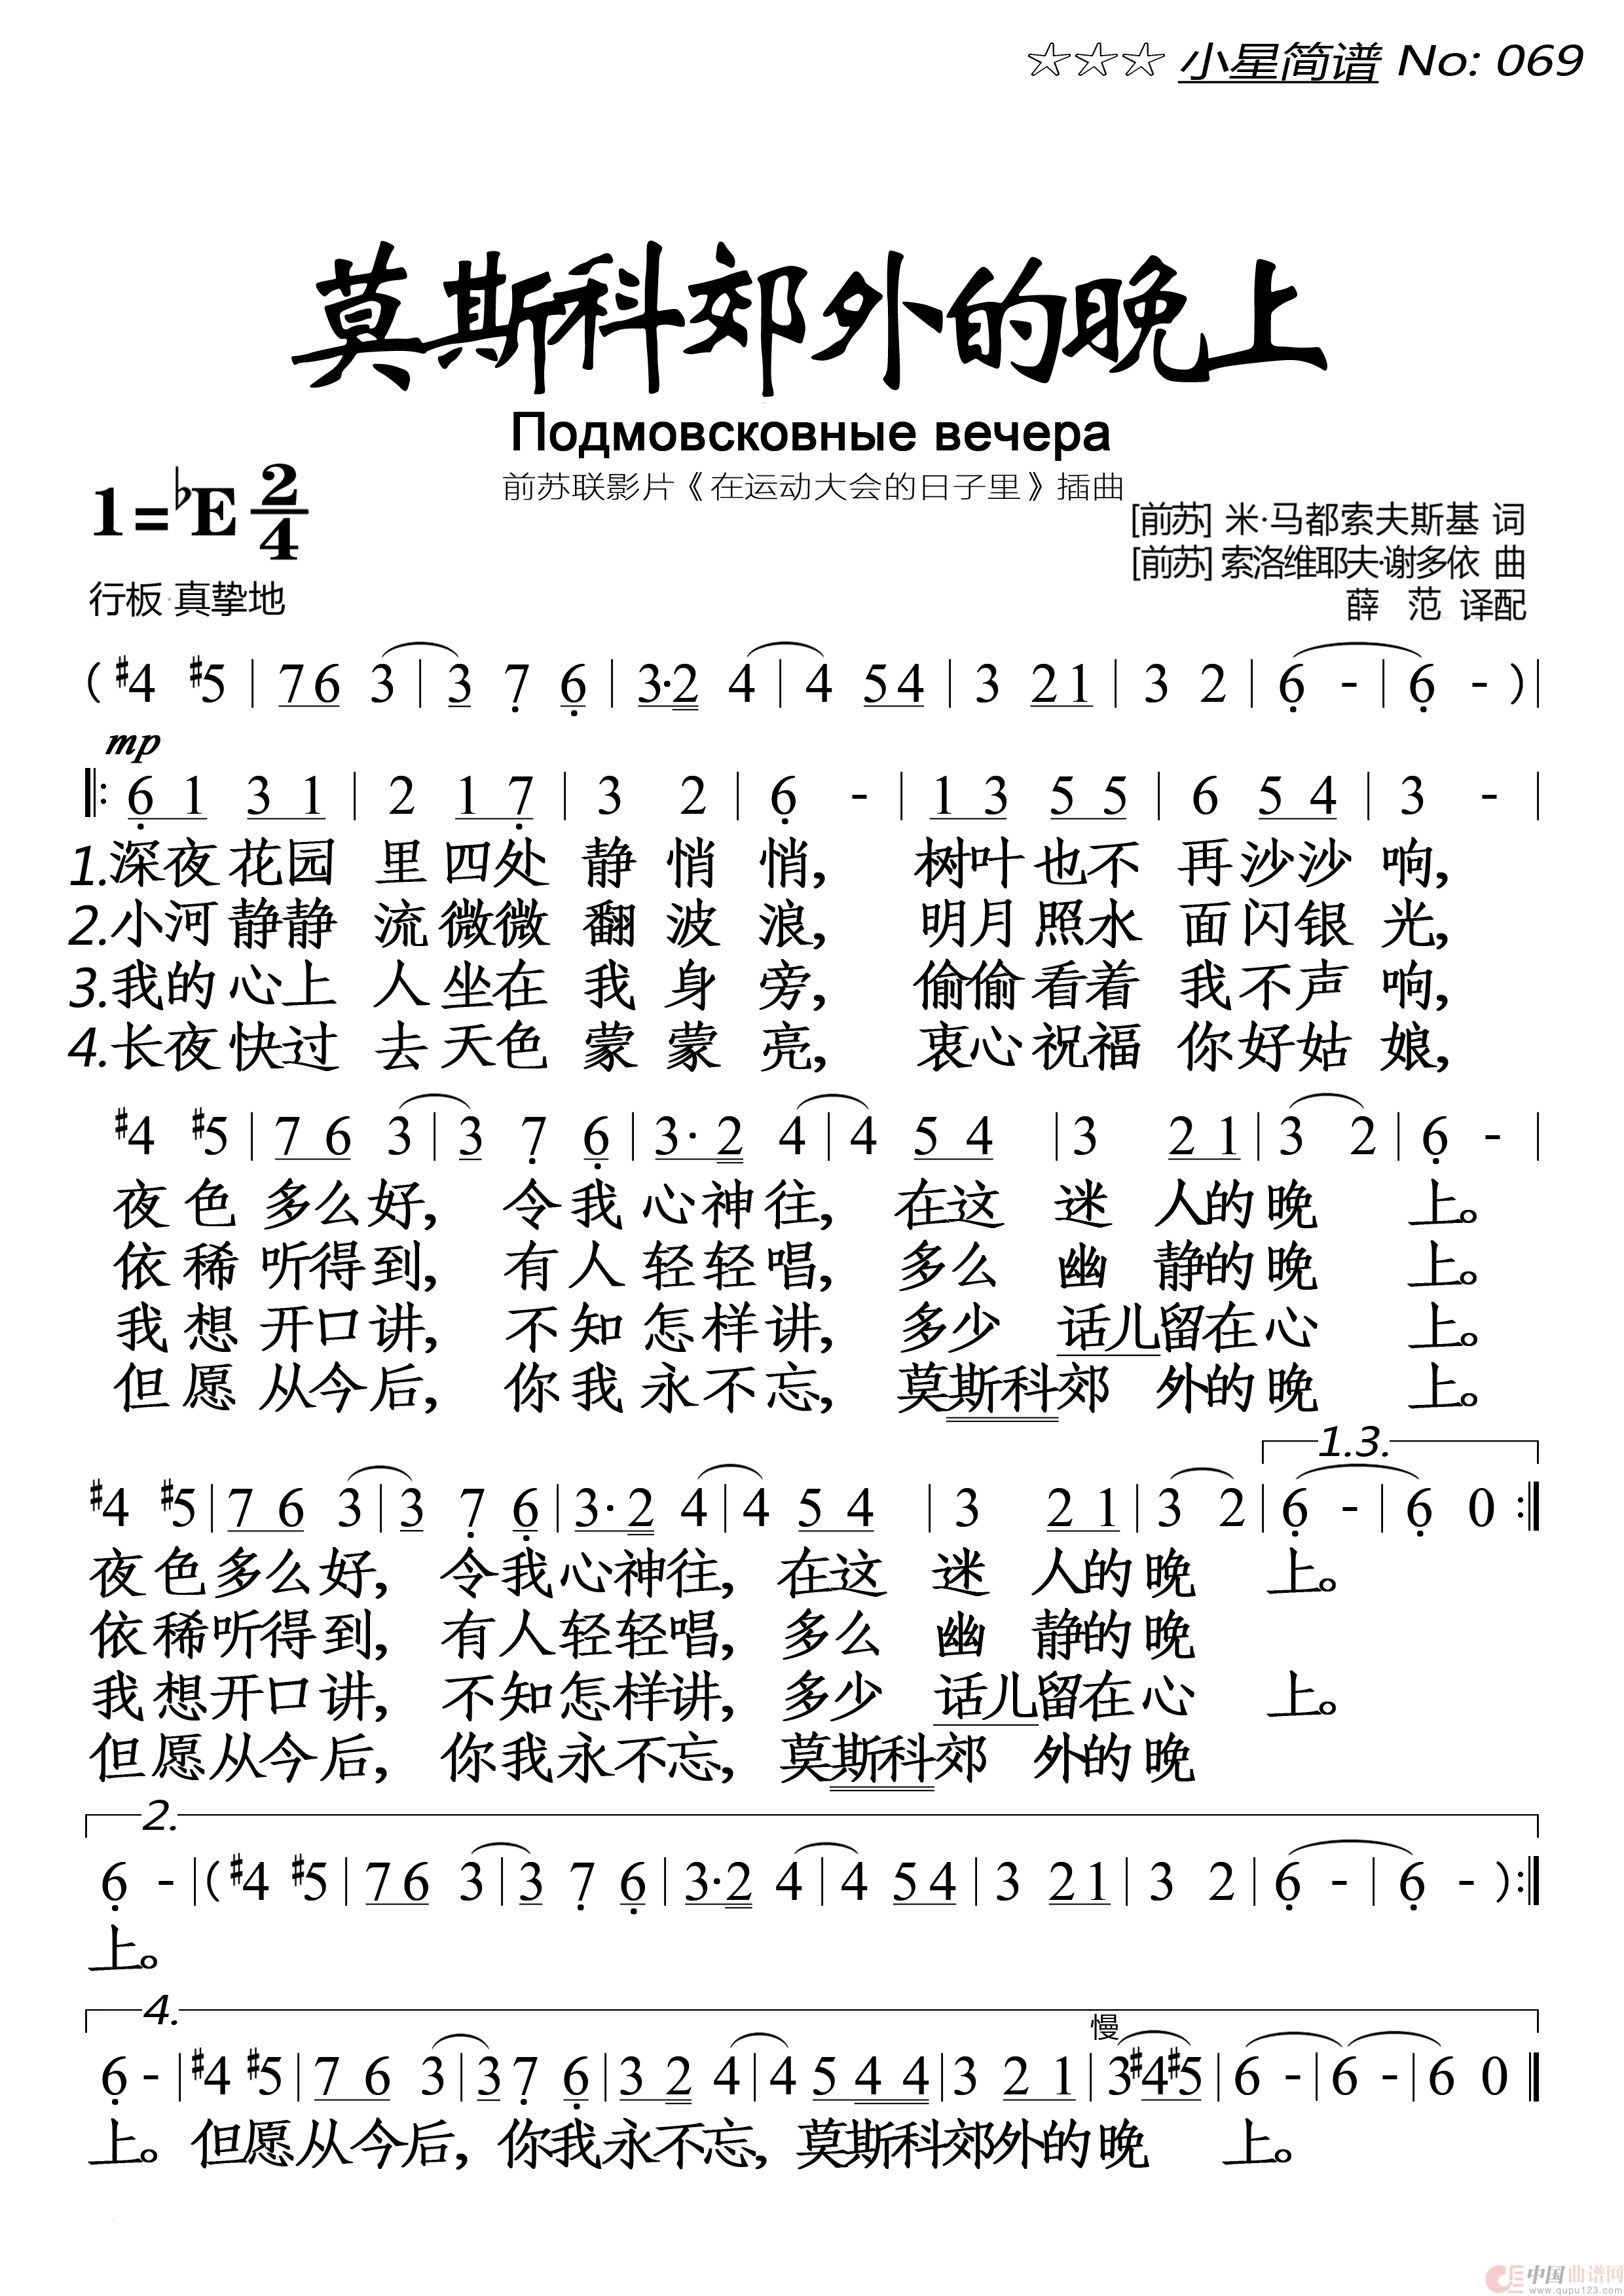 ☆☆☆ 小星简谱 No: 069
莫斯科郊外的晚上
Подмовсковные вечера
前苏联影片《在运动大会的日子里》插曲
1=♭E 2/4
[前苏] 米·马都索夫斯基 词
[前苏] 索洛维耶夫·谢多依 曲
行板·真挚地
薛 范 译配
( #4 #5 | 7 6 3 | 3 7 6 | 3· 2 4 | 4 5 4 | 3 2 1 | 3 2 | 6 - | 6 - ) |
mp
‖: 6 1 3 1 | 2 1 7 | 3 2 | 6 - | 1 3 5 5 | 6 5 4 | 3 - |
1.深夜花园 里四处 静 悄 悄, 树叶也不 再沙沙 响,
2.小河静静 流微微 翻 波 浪, 明月照水 面闪银 光,
3.我的心上 人坐在 我 身 旁, 偷偷看着 我不声 响,
4.长夜快过 去天色 蒙 蒙 亮, 衷心祝福 你好姑 娘,
#4 #5 | 7 6 3 | 3 7 6 | 3· 2 4 | 4 5 4 | 3 2 1 | 3 2 | 6 - |
夜 色 多么好, 令我心神往, 在这 迷 人的晚 上。
依 稀 听得到, 有人轻轻唱, 多么 幽 静的晚 上。
我 想 开口讲, 不知怎样讲, 多少 话儿留在心 上。
但 愿 从今后, 你我永不忘, 莫斯科郊 外的晚 上。
1.3.
#4 #5 | 7 6 3 | 3 7 6 | 3· 2 4 | 4 5 4 | 3 2 1 | 3 2 | 6 - | 6 0 :‖
夜色多么好, 令我心神往, 在这 迷 人的晚 上。
依稀听得到, 有人轻轻唱, 多么 幽 静的晚
我想开口讲, 不知怎样讲, 多少 话儿留在心 上。
但愿从今后, 你我永不忘, 莫斯科郊 外的晚
2.
6 - | ( #4 #5 | 7 6 3 | 3 7 6 | 3· 2 4 | 4 5 4 | 3 2 1 | 3 2 | 6 - | 6 - ) :‖
上。
4.
慢
6 - | #4 #5 | 7 6 3 | 3 7 6 | 3 2 4 | 4 5 4 4 | 3 2 1 | 3 #4 #5 | 6 - | 6 - | 6 0 ‖
上。但愿从今后, 你我永不忘, 莫斯科郊外的晚 上。
中国曲谱网
www.qupu123.com